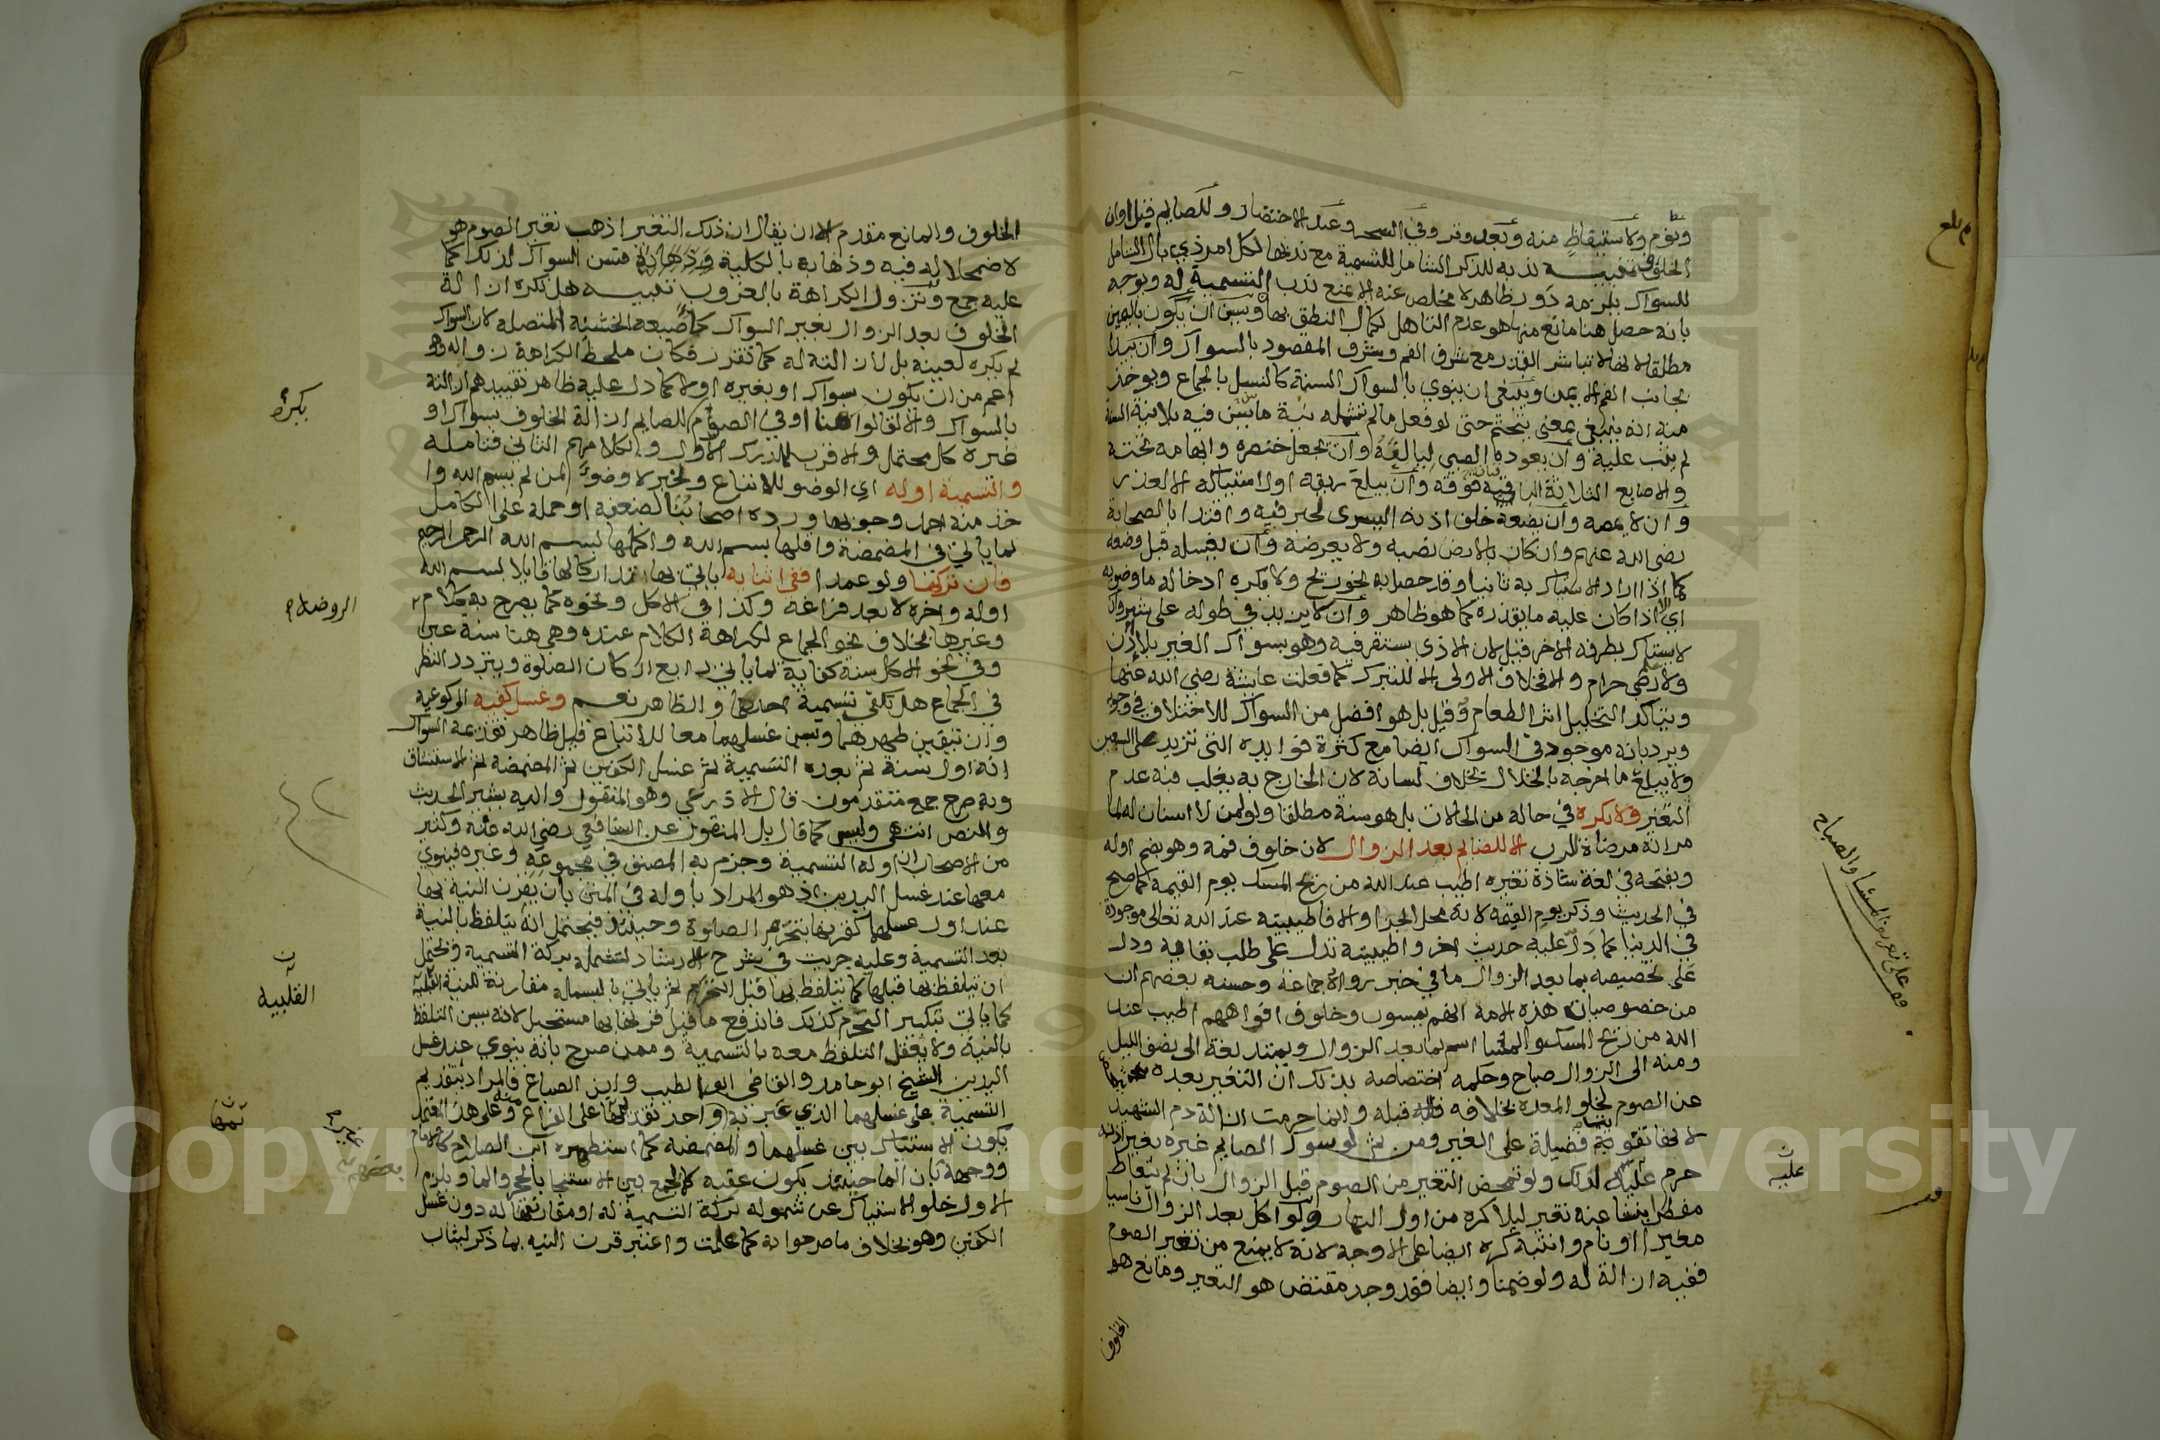 ونوم ولاستيقاظ منه وبعد وتر وفي السحر وعند الاحتضار وللصايم قبل اوان
الخلوف تنبيه ندبه للذكر الشامل للتسمية مع ندبها لكل امر ذي بال الشامل
للسواك يلزمه دور ظاهر لا مخلص عنه الا بمنع ندب التسمية له ويوجه
بانه حصل هنا مانع منها هو عدم التاهل لكمال النطق بها ويسن ان يكون باليمين
مطلقا لانها لا تباشر القذر مع شرف الفم وشرف المقصود بالسواك وان يبدا
بجانب الفم الايمن وينبغي ان ينوي بالسواك السنة كالغسل بالجماع ويوخذ
منه ان ينبغي بمعنى يتحتم حتى لو فعل ما لم تشمله نية ما سن فيه بلا نية السنة
لم يثب عليه وان يعوده الصبي ليالفه وان يجعل خنصره وابهامه تحته
والاصابع الثلاثة الباقية فوقه وان يبلع ريقه اول استياكه الا لعذر
وان لا يمصه وان يضعه خلف اذنه اليسرى لخبر فيه واقتدا بالصحابة
رضي الله عنهم وان كان بالارض نصبه ولا يعرضه وان يغسله قبل وضعه
كما اذا اراد الاستياك به ثانيا وقد حصل به نحو ريح ولا يكره ادخاله ما وضويه
اي الا اذا كان عليه ما يقذره كما هو ظاهر وان لا يزيد في طوله على شبر وان
لا يستاك بطرفه الاخر قيل لان الاذى يستقر فيه وهو بسواك الغير بلا اذن
ولا رضى حرام والا فخلاف الاولى الا للتبرك كما فعلت عايشة رضي الله عنها
ويتاكد التخليل اثر الطعام وقيل بل هو افضل من السواك للاختلاف في وجوبه
ويرد بانه موجود في السواك ايضا مع كثرة فوايده التي تزيد على السبعين
ولا يبلع ما اخرجه بالخلال بخلاف لسانه لان الخارج به يغلب فيه عدم
التغير ولا يكره في حالة من الحالات بل هو سنة مطلقا ولو لمن لا اسنان له لما
مر انه مرضاة للرب الا للصايم بعد الزوال لان خلوف فمه وهو بضم اوله
وبفتحه في لغة شاذة تغيره اطيب عند الله من ريح المسك يوم القيمة كما صح
في الحديث وذكر يوم القيمة لانه محل الجزا والا فاطيبيته عند الله تعالى موجودة
في الدنيا كما دل عليه حديث اخر واطيبيته تدل على طلب بقايه ودل
على تخصيصه بما بعد الزوال ما في خبر رواه جماعة وحسنه بعضهم ان
من خصوصيات هذه الامة انهم يمسون وخلوف افواههم اطيب عند
الله من ريح المسك والمسا اسم لما بعد الزوال ويمتد لغة الى نصف الليل
ومنه الى الزوال صباح وحكمه اختصاصه بذلك ان التغير بعده
عن الصوم لخلو المعدة بخلافه قبله وانما حرمت ازالة دم الشهيد
لانها تفويت فضيلة على الغير ومن ثم لو سوك الصايم غيره بغير اذنه
حرم عليه لذلك ولو تمحض التغير من الصوم قبل الزوال بان لم يتعاط
مفطرا ينشا عنه تغير ليلا كره من اول النهار ولو اكل بعد الزوال ناسيا
مغيرا او نام وانتبه كره ايضا على الاوجه لانه لا يمنع من تغير الصوم
ففيه ازالة له ولو ضمنا وايضا فقد وجد مقتض هو التغير ومانع هو
الخلوف
بلغ
قف على تعريف المسا والصباح
عليه
الخلوف والمانع مقدم الا ان يقال ان ذلك التغير اذهب تغير الصوم هو
لاضمحلاله فيه وذهابه بالكلية فتسن السواك لذلك كما
عليه جمع وتزول الكراهة بالغروب تنبيه هل تكره ازالة
الخلوف بعد الزوال بغير السواك كاصبعه الخشنة المتصلة لان السواك
لم يكره لعينه بل لازالته له كما تقرر فكان ملحظ الكراهة زواله وهو
اعم من ان يكون بسواك او بغيره او لا كما دل عليه ظاهر تقييدهم ازالته
بالسواك والا لقالوا هنا او في الصوم للصايم ازالة الخلوف بسواك او
غيره كل محتمل والاقرب للمدرك الاول ولكلامهم الثاني فتامله
والتسمية اوله اي الوضو للاتباع ولخبر لا وضو لمن لم يسم الله وا
خذ منه احمد وجوبها ورده اصحابنا لضعفه او حمله على الكامل
لما ياتي في المضمضة واقلها بسم الله واكملها بسم الله الرحمن الرحيم
فان تركها ولو عمدا ففي اثنايه ياتي بها تداركا لها قايلا بسم الله
اوله واخره لا بعد فراغه وكذا في الاكل ونحوه كما يصرح به كلام
وغيرها بخلاف نحو الجماع لكراهة الكلام عنده وهي هنا سنة عين
وفي نحو الاكل سنة كفاية لما ياتي رابع اركان الصلوة ويتردد النظر
في الجماع هل يكفي تسمية احدهما والظاهر نعم وغسل كفيه الى كوعيه
وان تيقن طهرهما ويسن غسلهما معا للاتباع قيل ظاهر تقديمه السواك
انه اول سنة ثم بعده التسمية ثم غسل الكفين ثم المضمضة ثم الاستنشاق
وبه صرح جمع متقدمون قال الاذرعي وهو المنقول واليه يشير الحديث
والنص انتهى وليس كما قال بل المنقول عن الشافعي رضي الله عنه وكثير
من الاصحاب ان اوله التسمية وجزم به المصنف في مجموعه وغيره فينوي
معها عند غسل اليدين اذ هو المراد باوله في المتن بان يقرن النية بها
عند اول غسلهما كقرنها بتحرم الصلوة وحينئذ فيحتمل انه يتلفظ بالنية
بعد التسمية وعليه جريت في شرح الارشاد لتشمله بركة التسمية ويحتمل
ان يتلفظ بها قبلها كما يتلفظ بها قبل التحرم ثم ياتي بالبسملة مقارنة للنية القلبية
كما ياتي بتكبير التحرم كذلك فاندفع ما قيل قرنها بها مستحيل لانه يسن التلفظ
بالنية ولا يعقل التلفظ معه بالتسمية وممن صرح بانه ينوي عند غسل
اليدين الشيخ ابو حامد والقاضي ابو الطيب وابن الصباغ فالمراد بتقديم
التسمية على غسلهما الذي عبر به واحد تقديمها على الفراغ منه وعلى هذا المعتمد
يكون الاستياك بين غسلهما والمضمضة كما استظهره ابن الصلاح كالامام
ووجهه بان الما حينئذ يكون عقبه كالجمع بين الاستنجا بالحجر والما ويلزم
الاول خلو الاستياك عن شموله بركة التسمية له او مقارنتها له دون غسل
الكفين وهو بخلاف ما صرحوا به كما علمت واعتبر قرن النية بما ذكر ليثاب
يكره
الروضة
القلبية
غيره